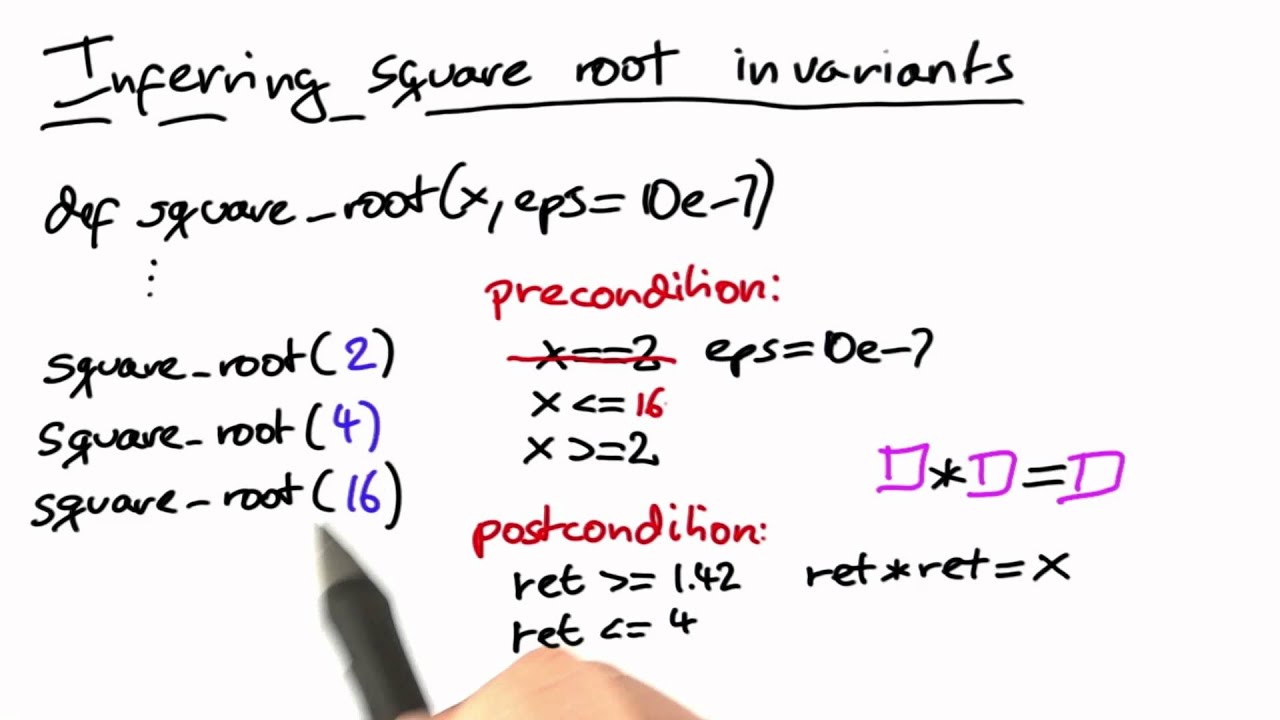 Inferring square root invariants
def square_root(x, eps=10e-7)
⋮
square_root(2)
square_root(4)
square_root(16)
precondition:
x==2 eps=10e-7
x <= 16
x >= 2
□*□=□
postcondition:
ret >= 1.42 ret*ret=x
ret <= 4